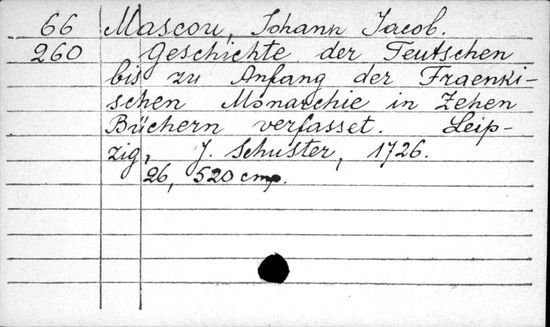 66 Mascou, Johann Jacob.
260 Geschichte der Teutschen
bis zu Anfang der Fraenki-
schen Monarchie in Zehen
Büchern verfasset. Leip-
zig, J. Schuster, 1726.
26, 520 cmp.